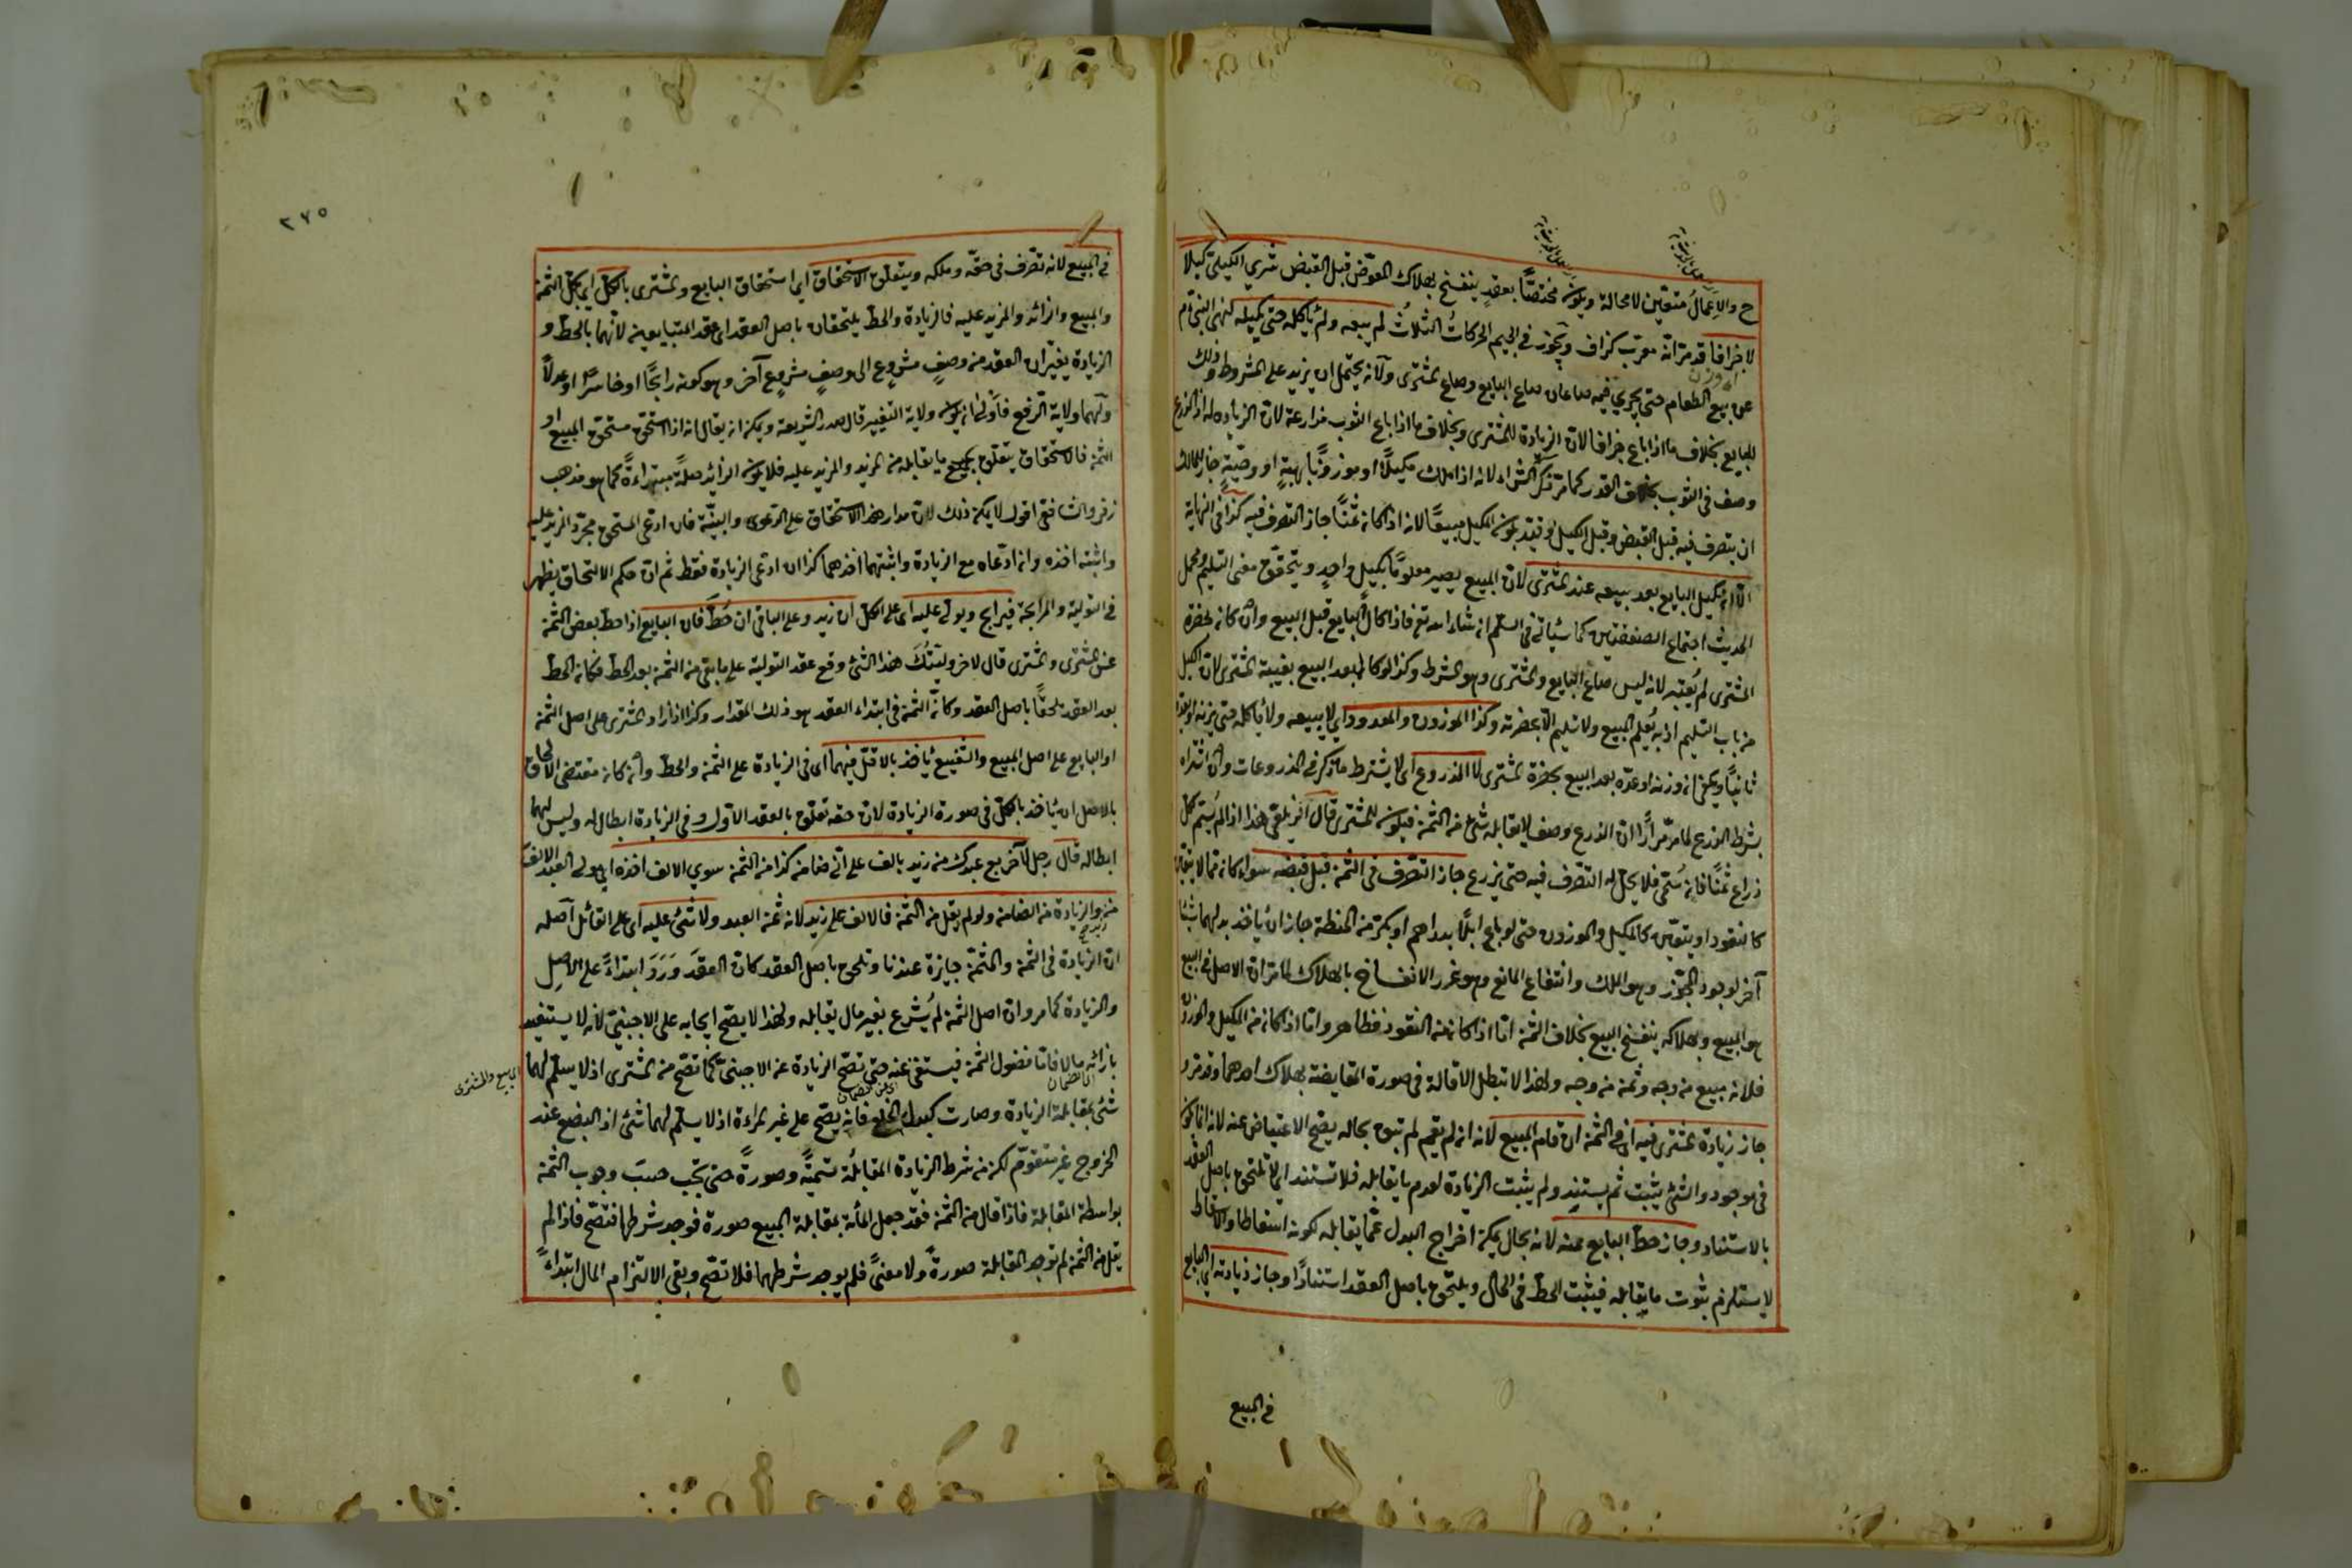 ح والاعمال متعين لامحالة ويكون مختصًّا بعقدٍ ينفسخ بهلاك المعوّض قبل القبض شرى الكيلي كيلا
لا جزافا قد مرّ انه معرّب كزاف ويجوز في الجيم الحركات الثلاث لم يبعه ولم يأكله حتى يكيله لنهى النبي عم
عن بيع الطعام حتى يجري فيه صاعان صاع البايع وصاع المشترى ولانه يحتمل ان يزيد على المشروط وذلك
للبايع بخلاف ما اذا باع جزافا لان الزيادة للمشترى وبخلاف ما اذا باع الثوب مذارعة لان الزيادة له اذ الذرع
وصف في الثوب بخلاف القدر كما مرّ ذكر الشراء لانه اذا ملك مكيلًا او موزونًا بهبةٍ او وصيّةٍ جاز للمالك
ان يتصرف فيه قبل القبض وقبل الكيل وقيّد بكون المكيل مبيعًا لانه اذا كان ثمنًا جاز التصرف فيه كذا في النهاية
الا ان يكيل البايع بعد بيعه عند المشترى لان المبيع يصير معلومًا بكيل واحدٍ ويتحقق معنى التسليم ومحمل
الحديث اجتماع الصفقتين كما سيأتي في السلم ان شاء الله تع فاذا كال البايع قبل البيع وان كان بحضرة
المشترى لم يُعتبر لانه ليس صاع البايع والمشترى وهو الشرط وكذا لو كاله بعد البيع بغيبة المشترى لان الكيل
من باب التسليم اذ به يُعلم المبيع ولا تسليم الا بحضرته وكذا الموزون والمعدود اي لا يبيعه ولا يأكله حتى يزنه او يعدّ
ثانيًا ويكفي ان وزنه او عدّه بعد البيع بحضرة المشترى لا المذروع اى لا يشترط ما ذكر في المذروعات وان اشتراه
بشرط الذرع لما مرّ مرارًا ان الذرع وصف لا يقابله شئ من الثمن فيكون للمشترى قال الزيلعي هذا اذا لم يُسمّ لكل
ذراع ثمنًا فان سُمّى فلا يحل له التصرف فيه حتى يذرع جاز التصرف في الثمن قبل قبضه سواء كان مما لا يتعين
كالنقود او يتعين كالمكيل والموزون حتى لو باع ابلًا بدراهم او بكرّ من الحنطة جاز ان يأخذ بدلهما شيئا
آخر لوجود المجوّز وهو الملك وانتفاع المانع وهو غرر الانفساخ بالهلاك لما مرّ ان الاصل في البيع
هو المبيع وبهلاكه ينفسخ البيع بخلاف الثمن اما اذا كان من النقود فظاهر واما اذا كان من المكيل والموزون
فلانه مبيع من وجه وثمن من وجه ولهذا لا تبطل الاقالة في صورة المقايضة بهلاك احدهما وقد مرّ و
جاز زيادة المشترى فيه اى في الثمن ان قام المبيع لانه ان لم يقم لم تبق بحاله يصح الاعتياض عنه لانه انما يكون
في موجود والشئ يثبت ثم يستند ولم يثبت الزيادة لعدم ما يقابله فلا تستند اى لا تلتحق باصل العقد
بالاستناد وجاز حط البايع عنه لانه بحال يمكن اخراج البدل عمّا يقابله لكونه اسقاطا والاسقاط
لا يستلزم ثبوت ما يقابله فيثبت الحط في الحال ويلتحق باصل العقد استنادًا وجاز زيادته اي البايع
في المبيع
٢٦٥
في المبيع لانه تصرف في حقه وملكه ويتعلق الاستحقاق اى استحقاق البايع والمشترى بالكل اى بكل الثمن
والمبيع والزائد والمزيد عليه فالزيادة والحط يلتحقان باصل العقد اى عقد المتبايعين لانهما بالحط و
الزيادة يغيّران العقد من وصفٍ مشروعٍ الى وصفٍ مشروعٍ آخر وهو كونه رابحًا او خاسرًا او عدلًا
ولهما ولاية الرفع فأولى ان يكون ولاية التغيير قال صدر الشريعة ويمكن ان يقال انه اذا استحق مستحق المبيع او
الثمن فالاستحقاق يتعلق بجميع ما يقابله من المزيد والمزيد عليه فلا يكون الزائد صلةً مبتدأةً كما هو مذهب
زفر والشافعي اقول لا يمكن ذلك لان مدار هذا الاستحقاق على الدعوى والبيّنة فان ادعى المستحق مجرّد المزيد عليه
واثبته اخذه وان ادّعاه مع الزيادة واثبتهما اخذهما كذا ان ادعى الزيادة فقط ثم ان حكم الالتحاق يظهر
في التولية والمرابحة فيرابح ويولى عليه اى على الكل ان زيد وعلى الباقي ان حُطّ فان البايع اذا حط بعض الثمن
عن المشترى والمشترى قال لاخر وليتك هذا الشئ وقع عقد التولية على ما بقى من الثمن بعد الحط فكان الحط
بعد العقد ملحقًا باصل العقد وكان الثمن في ابتداء العقد هو ذلك المقدار وكذا اذا زاد المشترى على اصل الثمن
او البايع على اصل المبيع والشفيع يأخذ بالاقل فيهما اى في الزيادة على الثمن والحط وان كان مقتضى الالحاق
بالاصل ان يأخذ بالكل في صورة الزيادة لان حقه تعلق بالعقد الاول وفي الزيادة ابطال له وليس لهما
ابطاله قال رجل لآخر بع عبدك من زيد بالف على انّي ضامن كذا من الثمن سوى الالف اخذه اى مولى العبد الالف
من زيد والزيادة من الضامن ولو لم يقل من الثمن فالالف على زيد لانه ثمن العبد ولا شئ عليه اى على القائل اصله
ان الزيادة في الثمن والمثمن جايزة عندنا وتلحق باصل العقد كان العقد وَرَدَ ابتداءً على الاصل
والزيادة كما مر وان اصل الثمن لم يُشرع بغير مال يقابله ولهذا لا يصح ايجابه على الاجنبيّ لانه لا يستفيد
بازائه مالا فاما فضول الثمن فيستغنى عنه حتى تصح الزيادة عن الاجنبيّ كما تصح من المشترى اذ لا يسلّم لهما
البايع والمشترى
شئ بمقابلة الزيادة وصارت كبدل الخلع فانه يصح على غير المراءة اذ لا يسلّم لهما شئ اذ البضع عند
الخروج غير متقوّم لكن من شرط الزيادة المقابلة تسميةً وصورةً حتى تجب حسب وجوب الثمن
بواسطة المقابلة فاذا قال من الثمن فقد جعل المأة بمقابلة المبيع صورة فوجد شرطها فتصح فاذا لم
يقل من الثمن لم توجد المقابلة صورةً ولا معنىً فلم يوجد شرطهما فلا تصح وبقى الالتزام المال ابتداءً